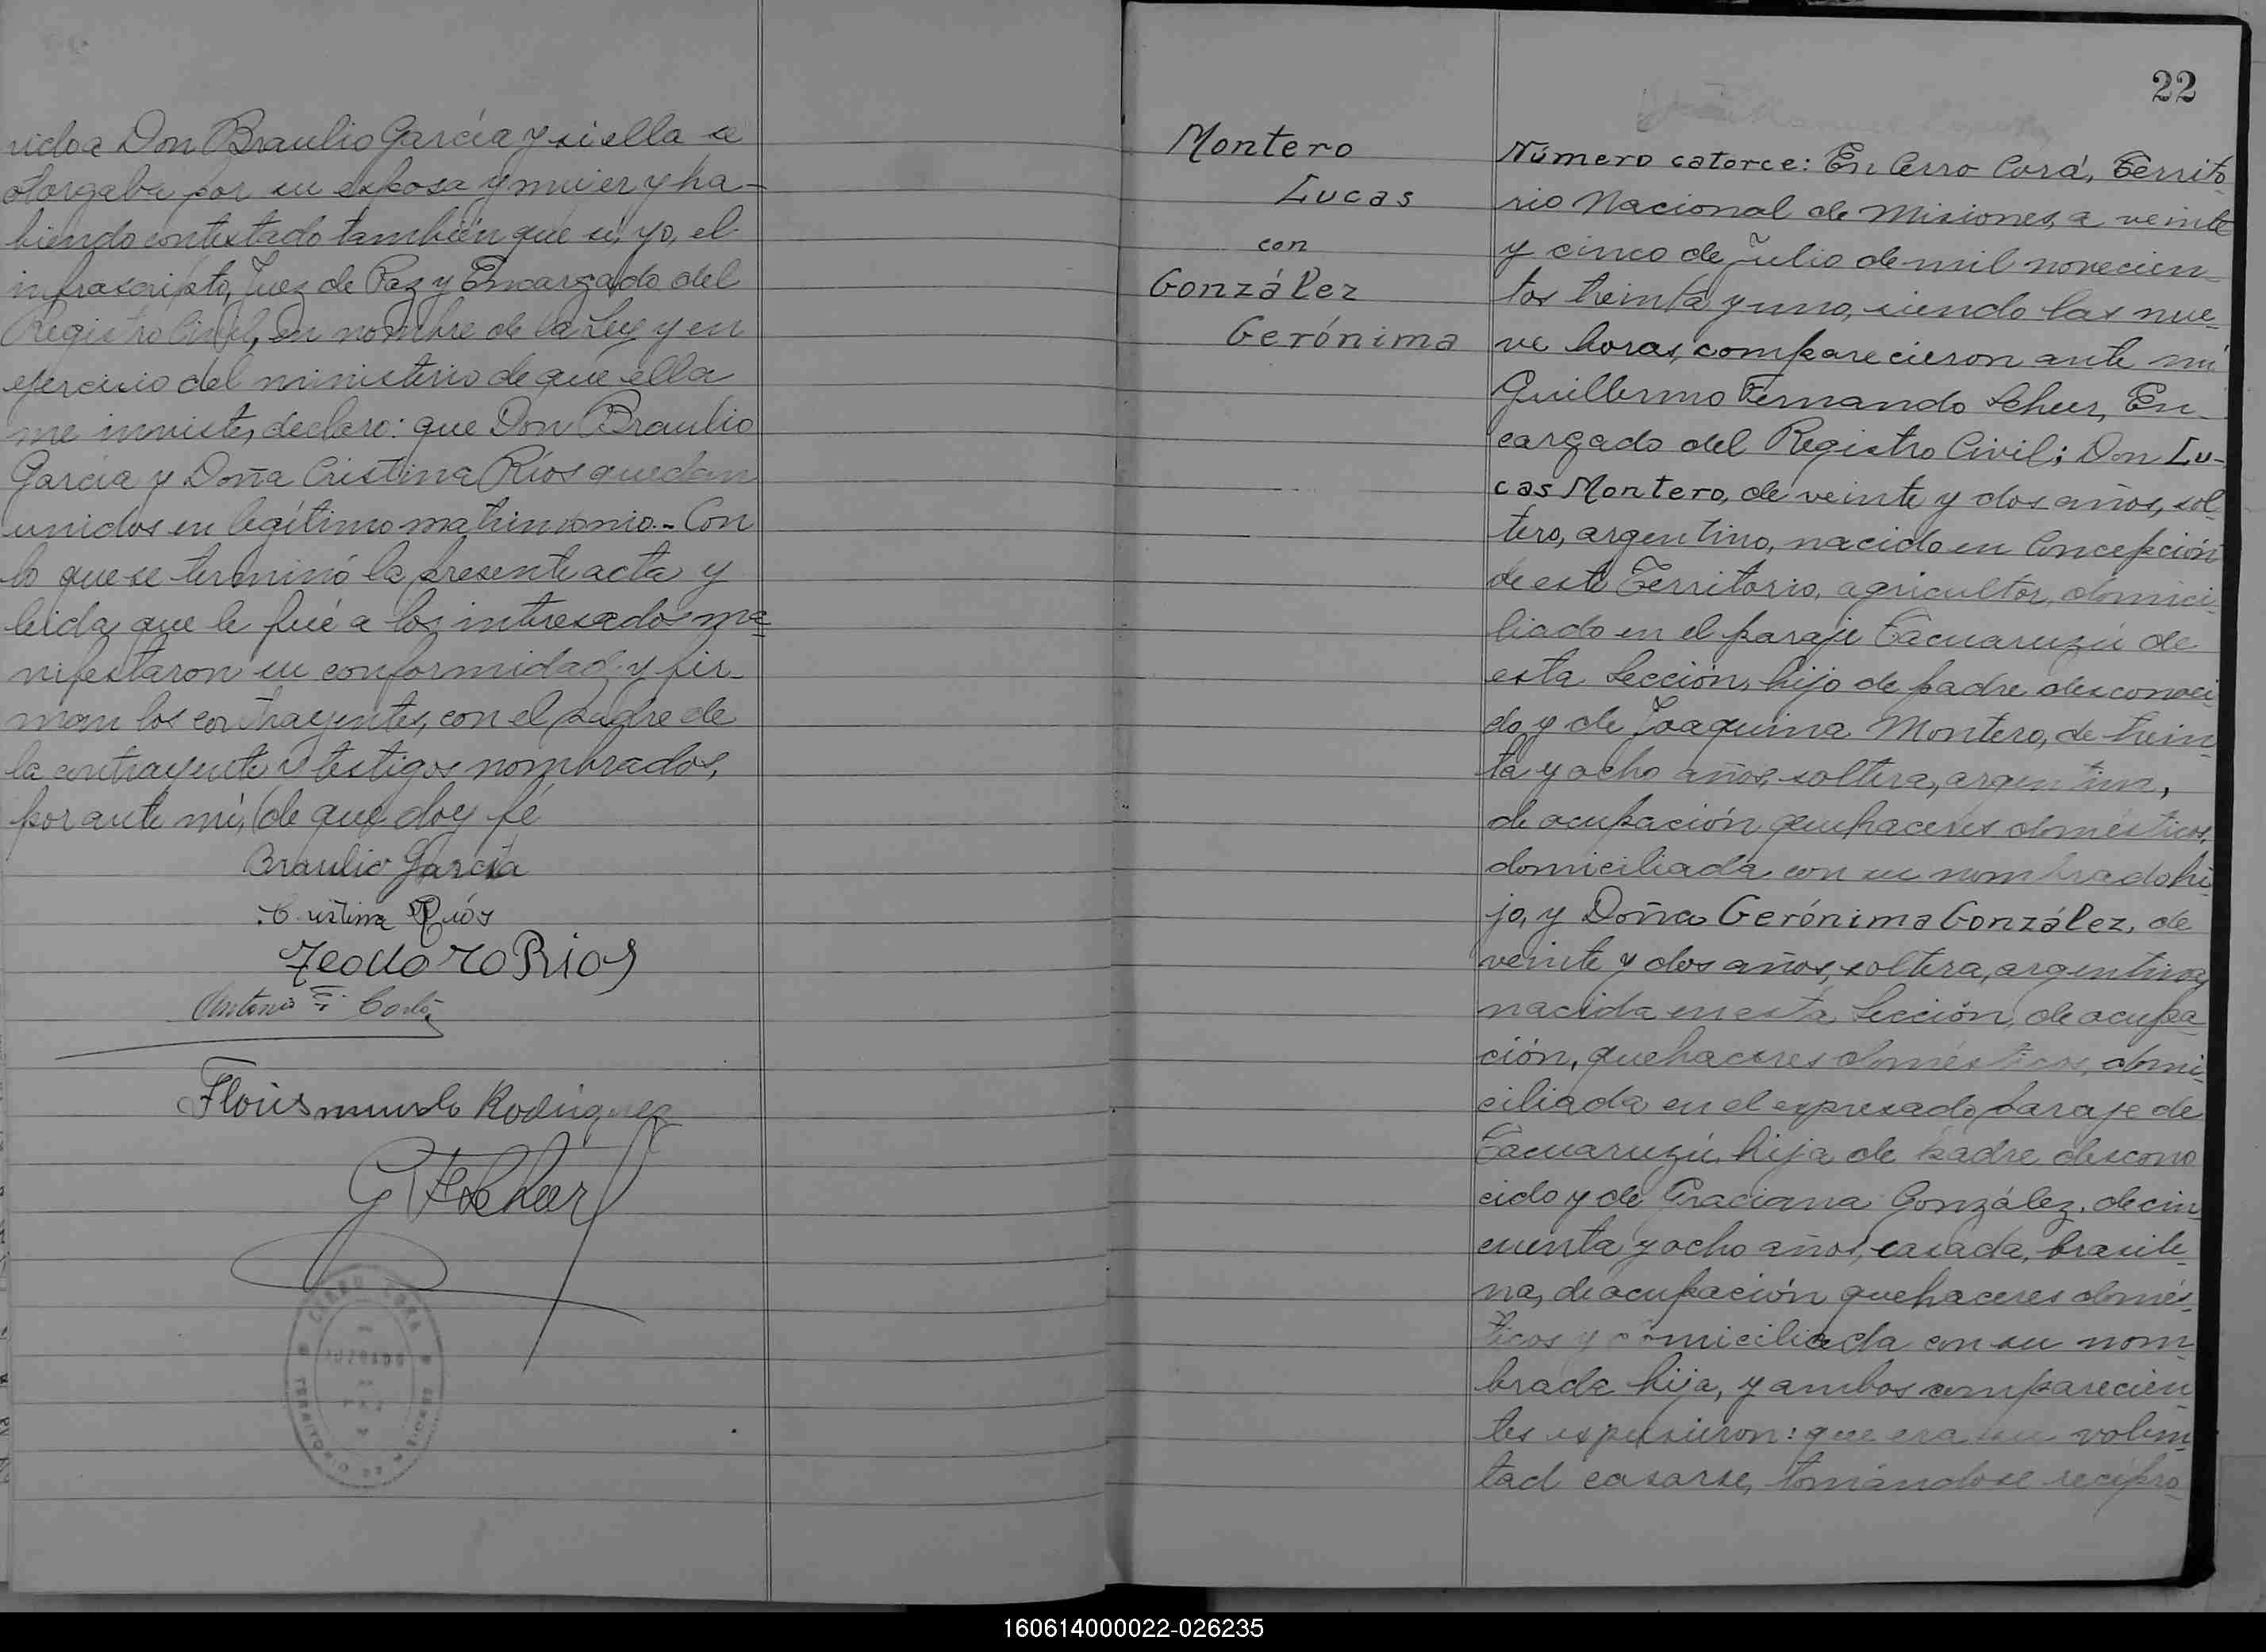 rido a Don Braulio García y si ella se
otorgaba por su esposa y mujer y ha-
biendo contestado también que sí, yo, el
infrascripto, Juez de Paz y Encargado del
Registro Civil, en nombre de la Ley y en
ejercicio del ministerio de que ella
me inviste, declaro: que Don Braulio
García y Doña Cristina Ríos quedan
unidos en legítimo matrimonio.- Con
lo que se terminó la presente acta y
leida que le fué a los interesados ma-
nifestaron su conformidad y fir-
man los contrayentes, con el padre de
la contrayente y testigos nombrados,
por ante mí, de que doy fé
Braulio García
Cristina Ríos
Teodoro Rios
Antonio F.
Florismundo Rodriguez
G F Scheer
CERRO CORA
JUZGADO
DE
PAZ
TERRITORIO DE MISIONES
22
Montero
Lucas
con
González
Gerónima
Número catorce: En Cerro Corá, Territo-
rio Nacional de Misiones, a veinte
y cinco de Julio de mil novecien-
tos treinta y uno, siendo las nue-
ve horas, comparecieron ante mí
Guillermo Fernando Scheer, En-
cargado del Registro Civil; Don Lu-
cas Montero, de veinte y dos años, sol-
tero, argentino, nacido en Concepción
de este Territorio, agricultor, domici-
liado en el paraje Tacuaruzú de
esta Sección, hijo de padre desconoci-
do y de Joaquina Montero, de trein-
ta y ocho años, soltera, argentina,
de ocupación quehaceres domésticos,
domiciliada con su nombrado hi-
jo, y Doña Gerónima González, de
veinte y dos años, soltera, argentina,
nacida en esta Sección, de ocupa-
ción, quehaceres domésticos, domi-
ciliada en el expresado paraje de
Tacuaruzú, hija de padre descono-
cido y de Graciana González, de cin-
cuenta y ocho años, casada, brasile-
na, de ocupación quehaceres domés-
ticos y domiciliada con su nom-
brada hija, y ambos comparecien-
tes expusieron: que era su volun-
tad casarse, tomándose recípro-
160614000022-026235